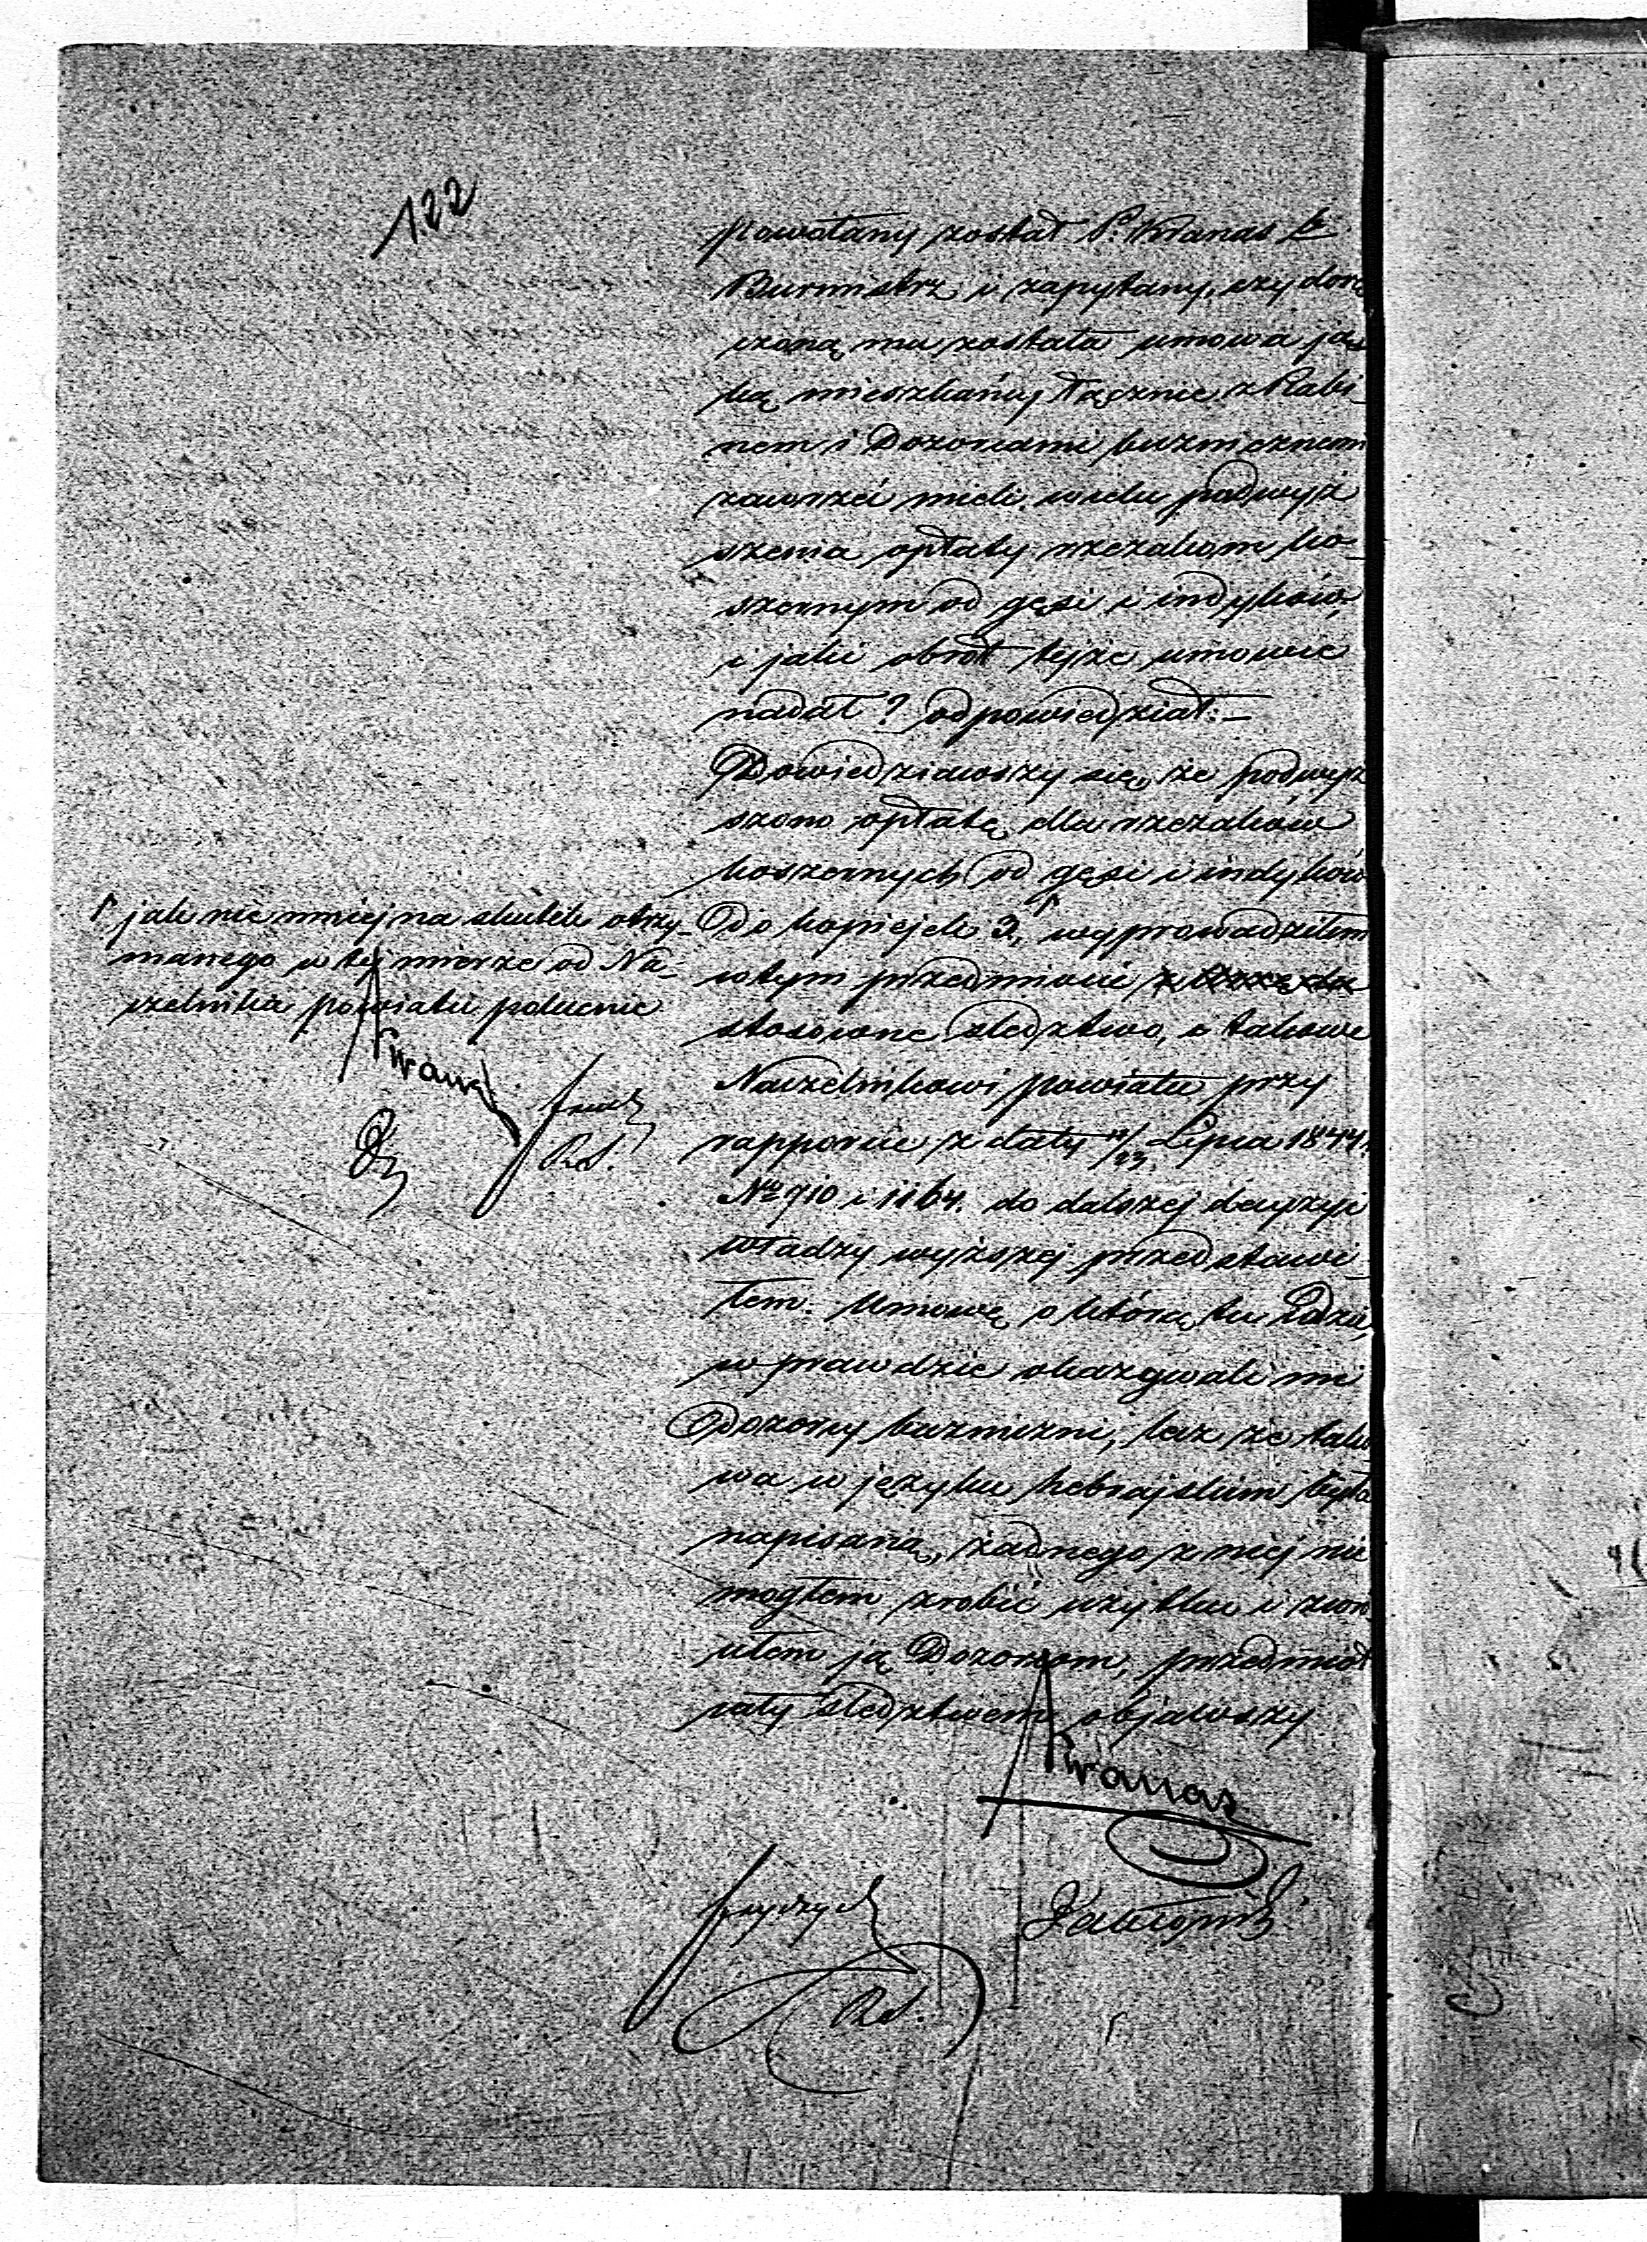 122
powołany został P. Kranas
Burmistrz i zapytany, czy dorę
czoną mu została umowa ja
ką mieszkańcy łącznie z Rabi-
nem i Dozorcami bużnicznemi
zawrzeć mieli, w celu podwyż
szenia opłaty rzezakom ko-
szernym od gęsi i indyków,
i jaki obrót tejże umowie
nadał? odpowiedział:-
Dowiedziawszy się, że podwyż
szono opłatę dla rzezaków
koszernych od gęsi i indyków
do kopiejek 3, wyprowadziłem
w tym przedmiocie
stosowne śledztwo, i takowe
Naczelnikowi powiatu przy
rapporcie z daty 11/23 Lipca 1844 r.
Nr 710 i 1164. do dalszej decyzyi
władzy wyższej przedstawi-
łem. Umowę o którą tu idzie,
w prawdzie okazywali mi
Dozorcy bużniczni, lecz że tako
wa w języku hebrajskim była
napisaną, żadnego z niej nie
mogłem zrobić użytku i zwró
ciłem ją Dozorcom, przedmiot
cały śledztwem objąwszy
Kranas
┌ jak nie mniej na skutek otrzy-
manego w tej mierze od Na-
czelnika powiatu polecenia
Kranas